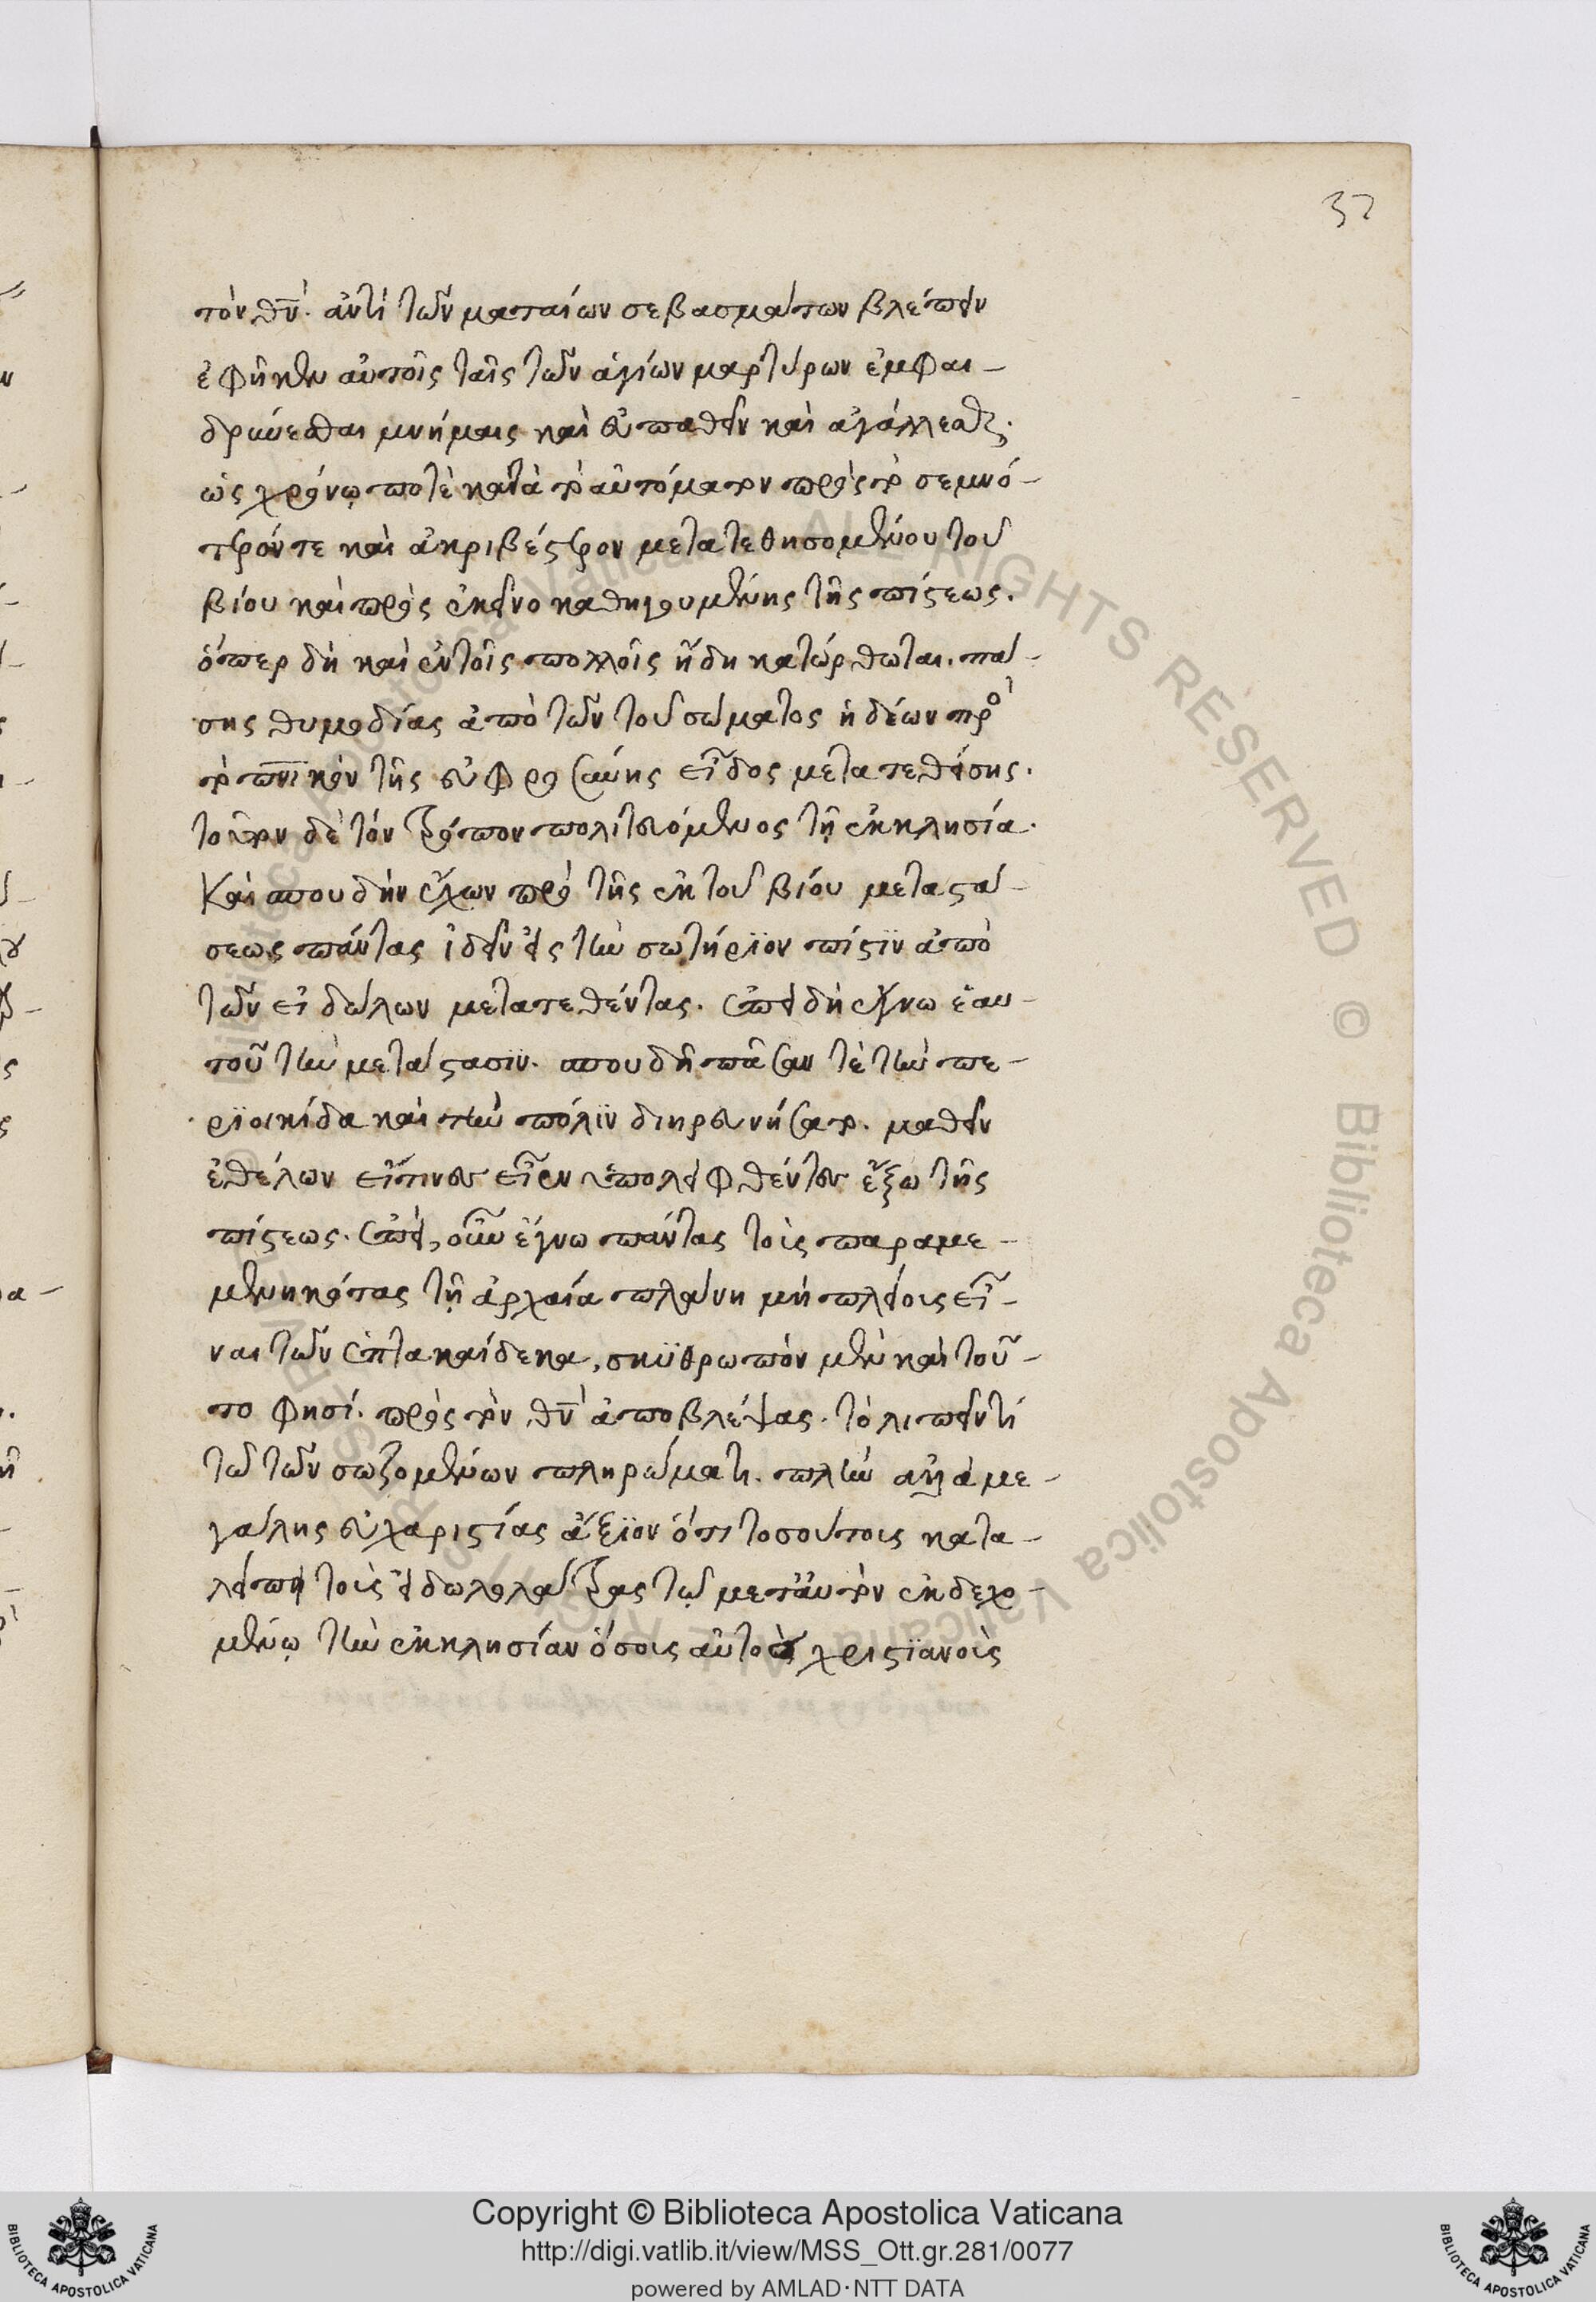 37
τὸν θν̅. ἀντὶ τῶν ματαίων σεβασμάτων βλέπειν
ἐφῆκεν αὐτοῖς ταῖς τῶν ἁγίων μαρτύρων ἐμφαι-
δρύνεσθαι μνήμαις καὶ εὐπαθεῖν καὶ ἀγάλλεσθαι.
ὡς χρόνῳ ποτὲ κατὰ τὸ αὐτόματον πρὸς τὸ σεμνό-
τερόν τε καὶ ἀκριβέστερον μετατεθησομένου τοῦ
βίου καὶ πρὸς ἐκεῖνο καθηγουμένης τῆς πίστεως.
ὅπερ δὴ καὶ ἐν τοῖς πολλοῖς ἤδη κατώρθωται. πά-
σης θυμηδίας ἀπὸ τῶν τοῦ σώματος ἡδέων πρὸ
τὸ πνι̅κὸν τῆς εὐφροσύνης εἶδος μετατεθείσης.
τοῦτον δὲ τὸν τρόπον πολιτευόμενος τῇ ἐκκλησία.
Καὶ σπουδὴν ἔχων πρὸ τῆς ἐκ τοῦ βίου μεταστά-
σεως πάντας ἰδεῖν εἰς τὴν σωτήριϊον πίστιν ἀπὸ
τῶν εἰδώλων μετατεθέντας. ἐπειδὴ ἔγνω ἑαυ-
τοῦ τὴν μετάστασιν. σπουδῆ πᾶσαν τὲ τὴν πε-
ριοικίδα καὶ τὴν πόλιν διηρευνήσατο. μαθεῖν
ἐθέλων εἴτινες εἶεν ὑπολειφθέντες ἔξω τῆς
πίστεως. ἐπεὶ, οὖν ἔγνω πάντας τοὺς παραμε-
μενηκότας τῇ ἀρχαία πλάνη μὴ πλείους εἶ-
ναι τῶν ἑπτακαίδεκα, σκυθρωπὸν μὲν καὶ τοῦ-
το φησί. πρὸς τὸν θν̅ ἀποβλέψας. τὸ λιπεῖν τί
τῶ τῶν σωζομένων πληρώματι. πλὴν ἀλλὰ με-
γάλης εὐχαριστίας ἄξιον ὅτι τοσούτους κατα-
λείπει τοὺς εἰδωλολάτρας τῷ μετ' αὐτὸν ἐκδεχο-
μένῳ τὴν ἐκκλησίαν ὅσους αὐτὸς χριστιανοὺς
Copyright © Biblioteca Apostolica Vaticana
http://digi.vatlib.it/view/MSS_Ott.gr.281/0077
powered by AMLAD·NTT DATA